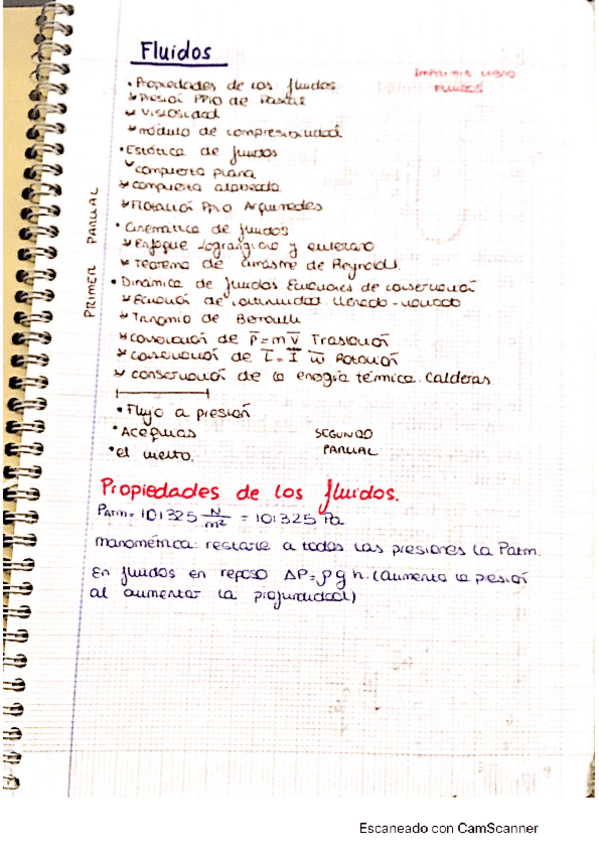 Fluidos
IMPRIMIR LIBRO
FLUIDOS
• Propiedades de los fluidos
Presión PPio de Pascal
Viscosidad
módulo de compresibilidad
• Estática de fluidos
compuerta plana
compuerta alabeada
Flotación PPio Arquímedes
• Cinemática de fluidos
Enfoque lagrangiano y euleriano
Teorema de arrastre de Reynolds.
• Dinámica de fluidos. Ecuaciones de conservación
Ecuación de continuidad. Llenado - vaciado
Trinomio de Bernoulli
conservación de p̄ = m v̄ Traslación
conservación de L̄ = Ī w̄ Rotación
conservación de la energía térmica. Calderas
PRIMER PARCIAL
• Flujo a presión
• Acequias
• el
SEGUNDO
PARCIAL
Propiedades de los fluidos.
Patm = 101325 N/m² = 101325 Pa
manométrica: restarle a todas las presiones la Patm.
En fluidos en reposo ΔP = ρ g h. (aumenta la presión
al aumentar la profundidad)
Escaneado con CamScanner